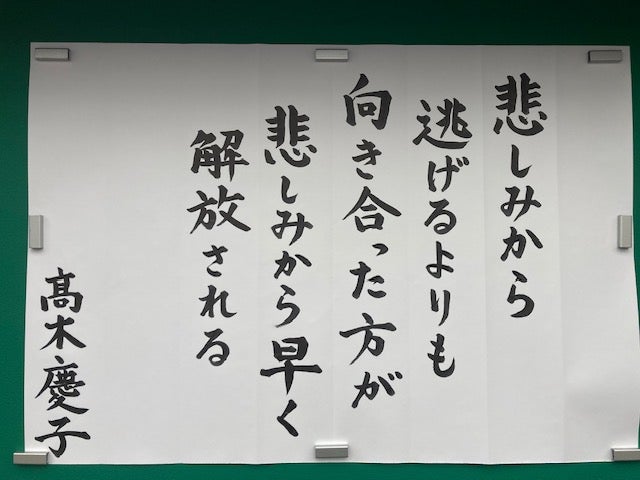 悲しみから
逃げるよりも
向き合った方が
悲しみから早く
解放される
髙木慶子